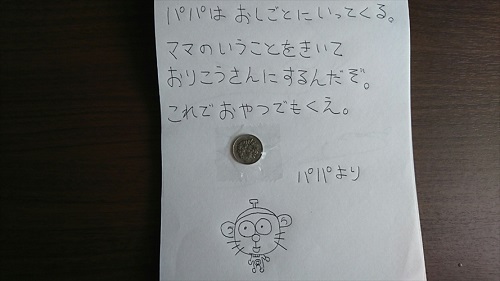 パパは おしごとにいってくる。
ママのいうことをきいて
おりこうさんにするんだぞ。
これでおやつでもくえ。
パパより